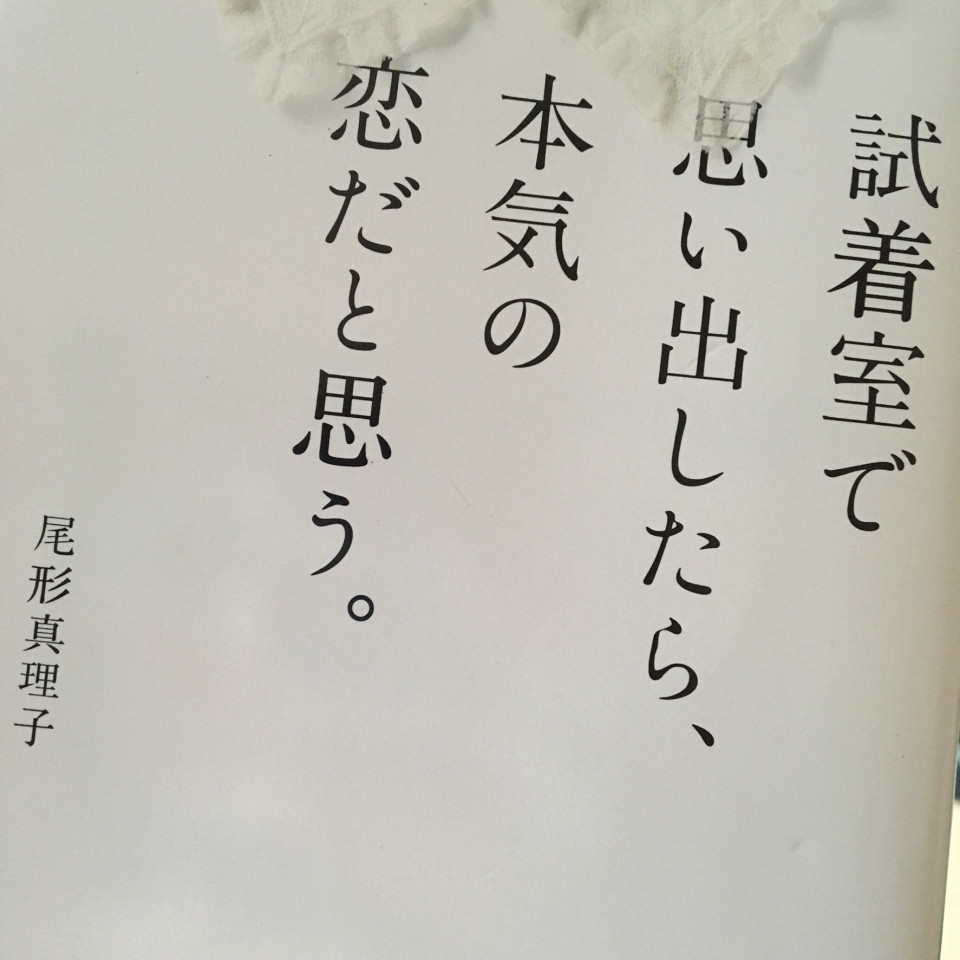 試着室で
思い出したら、
本気の
恋だと思う。
尾形真理子